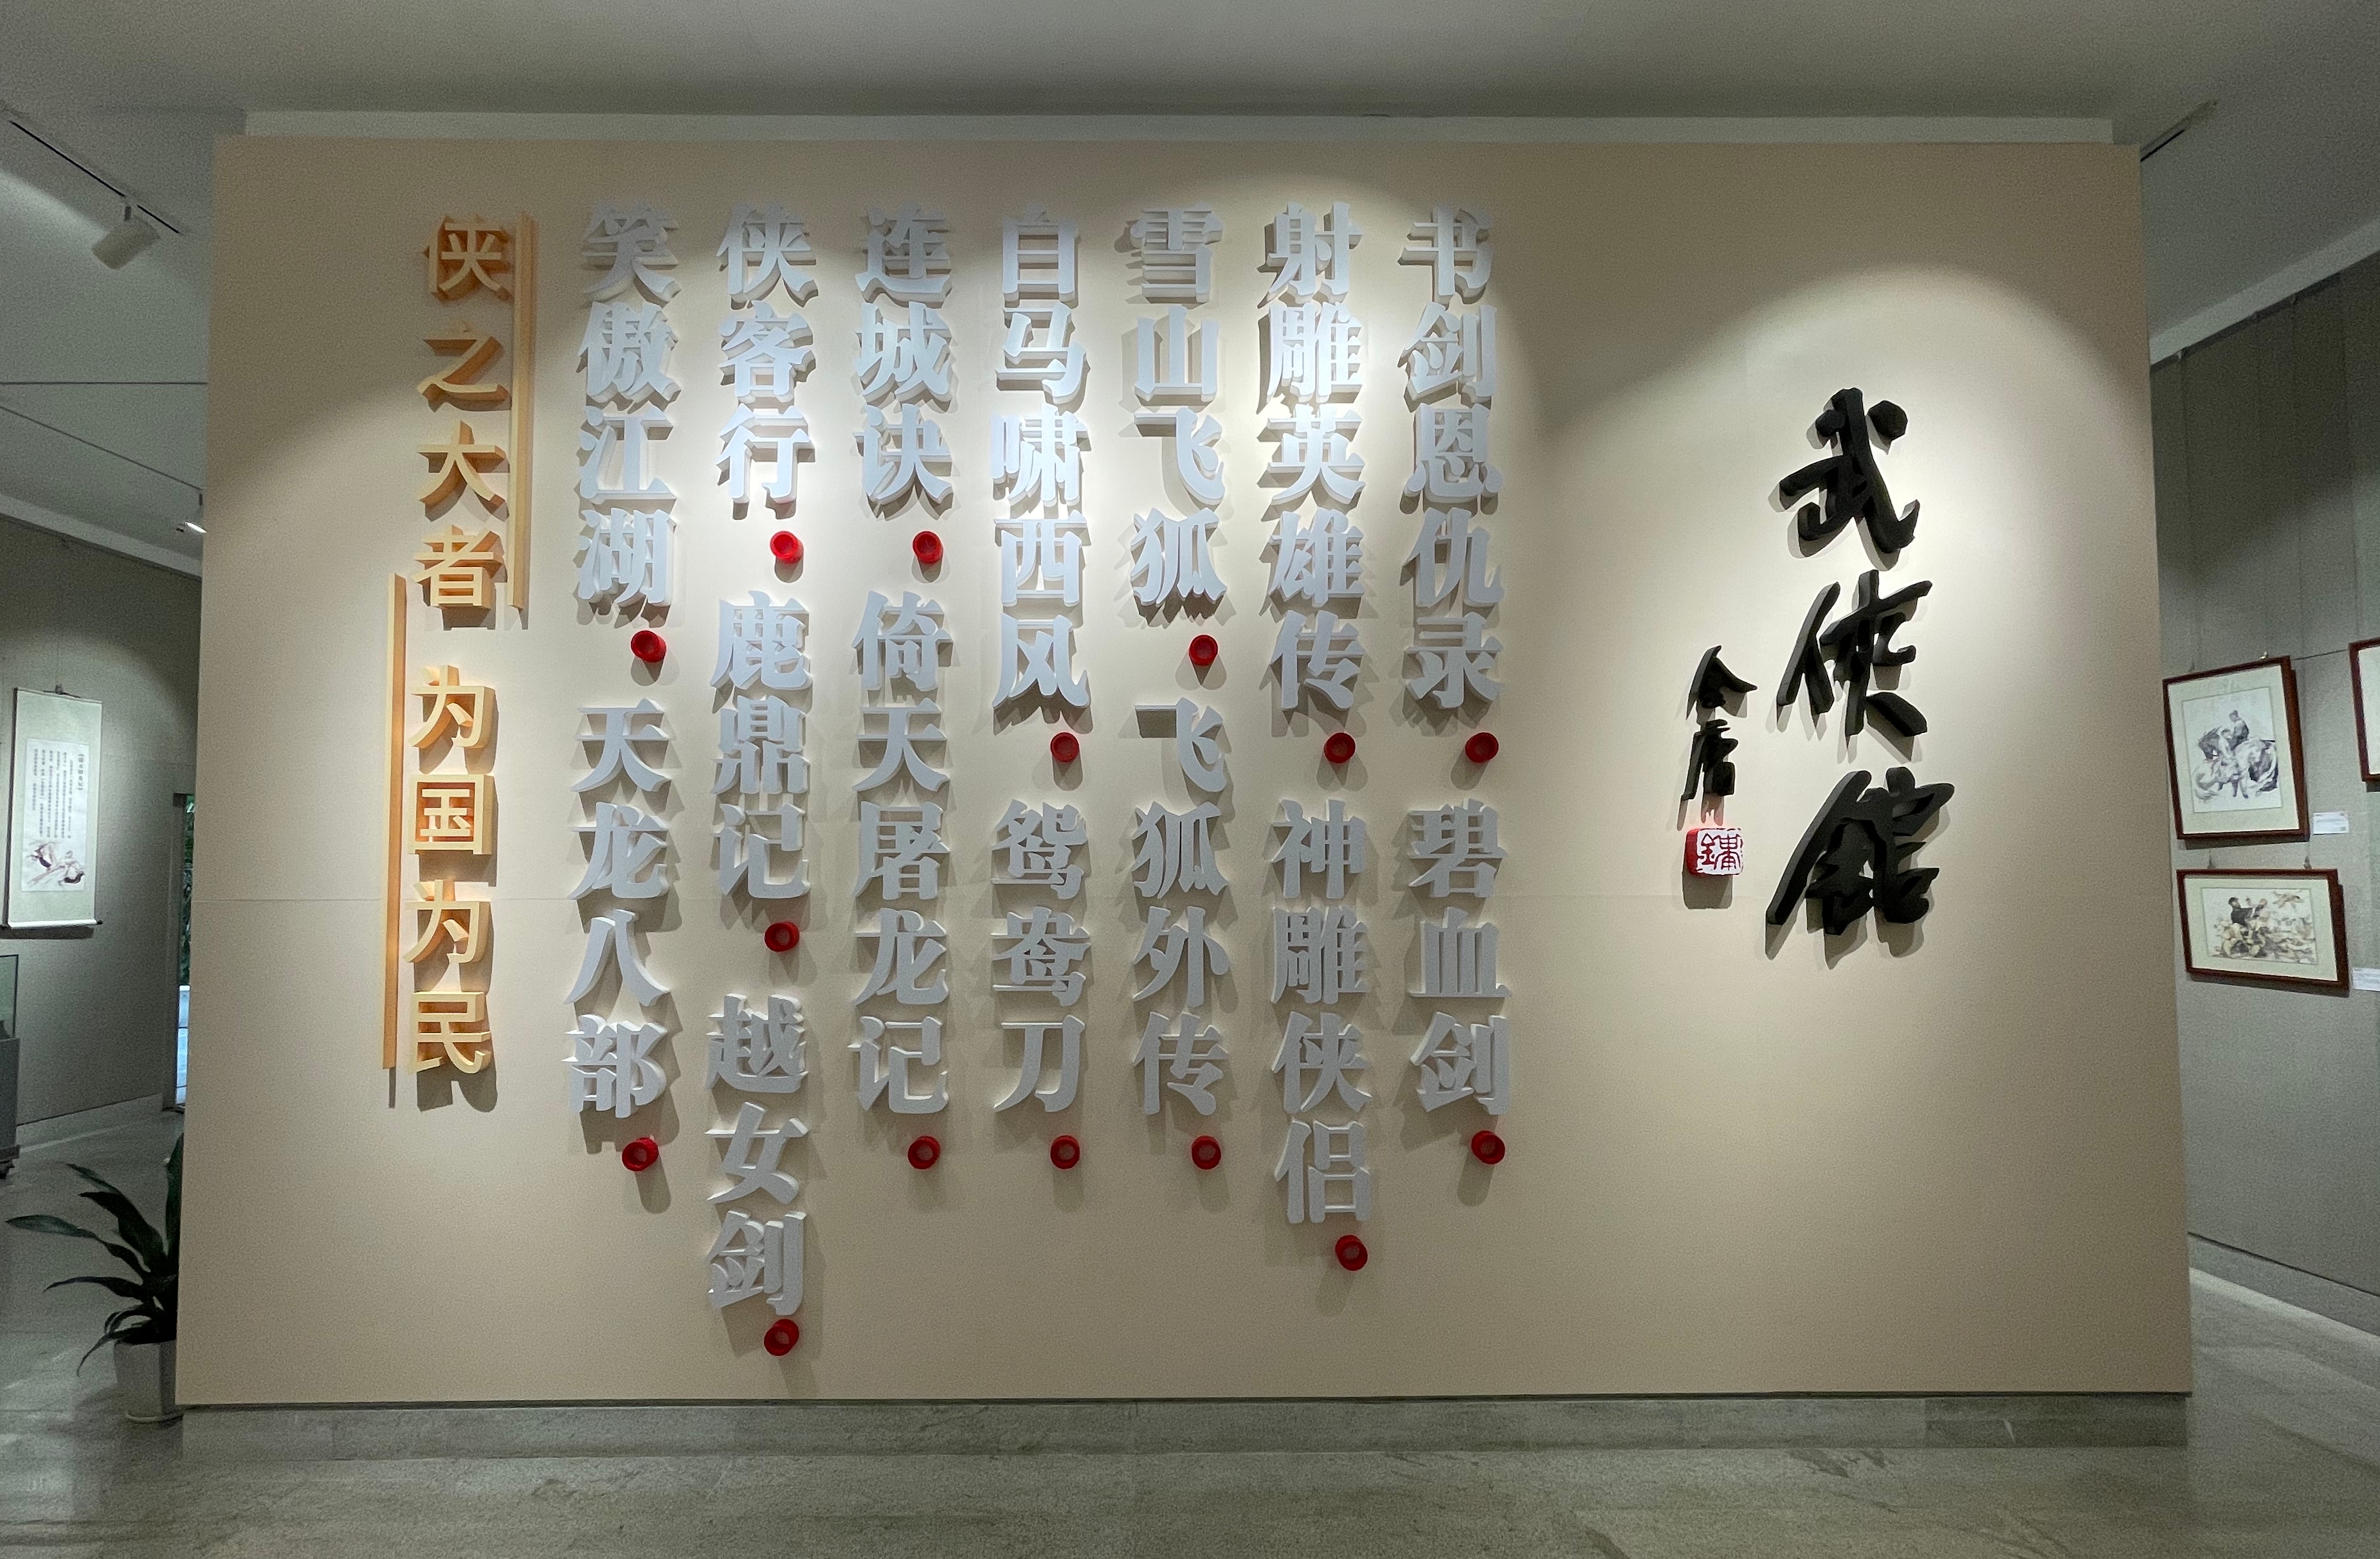 武侠館
金庸
鏞
书剑恩仇录。碧血剑。
射雕英雄传。神雕侠侣。
雪山飞狐。飞狐外传。
白马啸西风。鸳鸯刀。
连城诀。倚天屠龙记。
侠客行。鹿鼎记。越女剑。
笑傲江湖。天龙八部。
侠之大者
为国为民